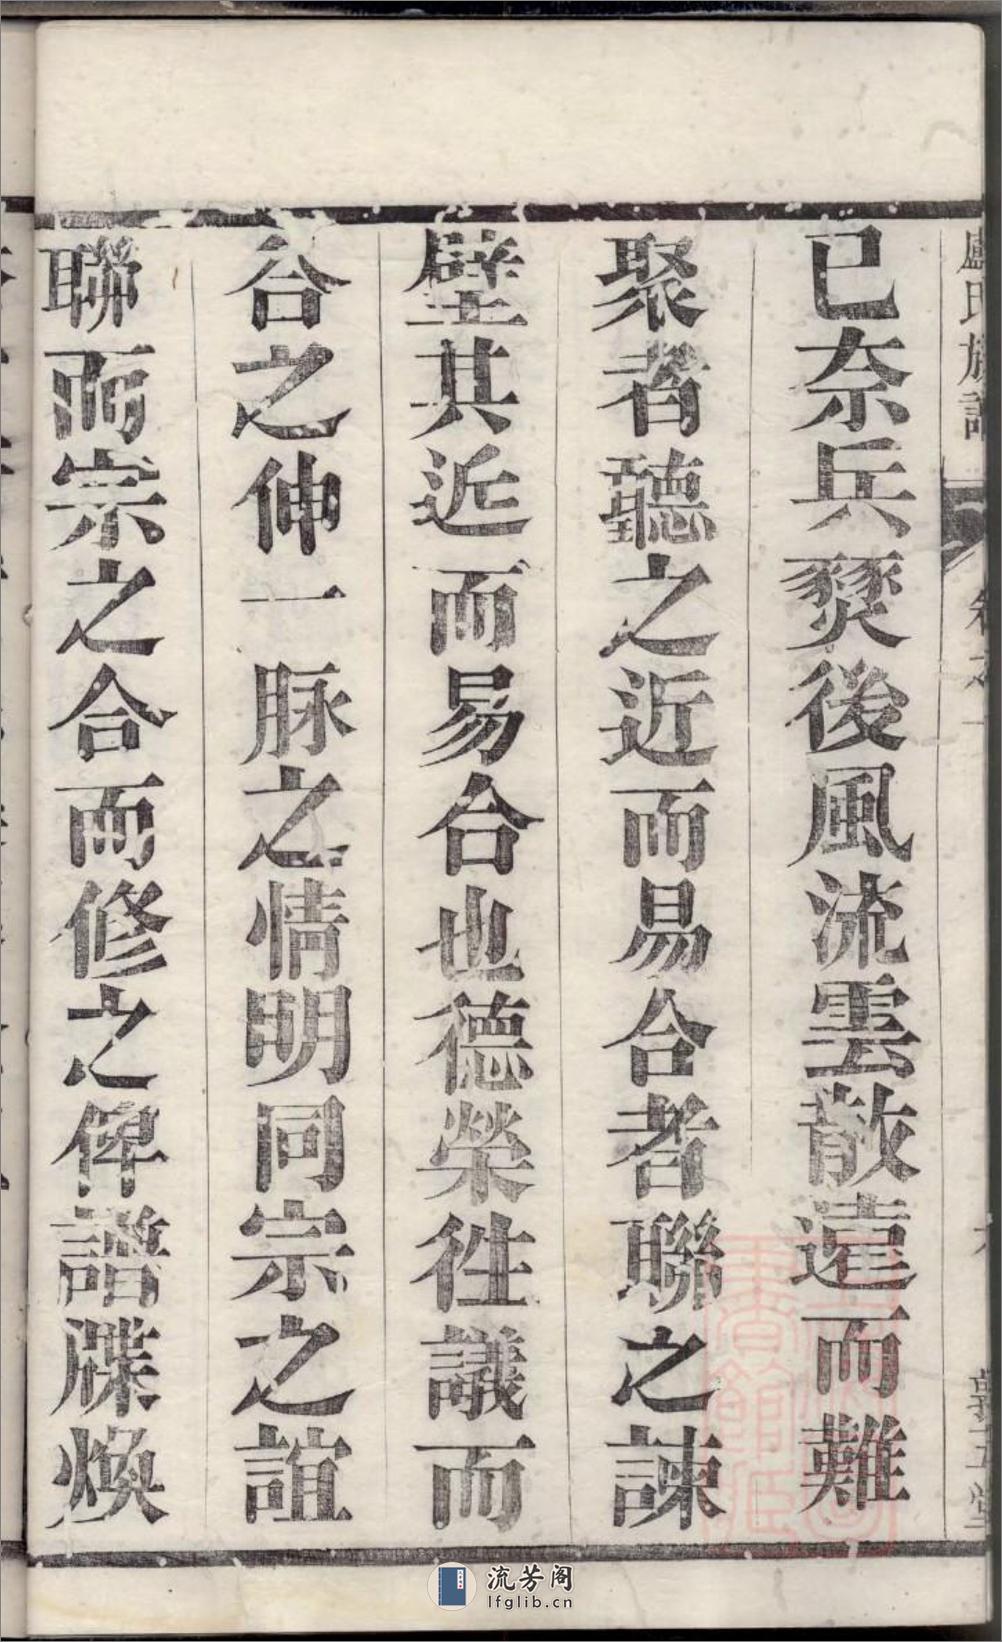 盧氏族譜
已奈兵燹後風流雲散遠而難
聚者聽之近而易合者聯之諫
壁其近而易合也德榮徃議而
合之伸一脉之情明同宗之誼
聯而宗之合而修之俾譜牒煥
流芳阁
lfglib.cn